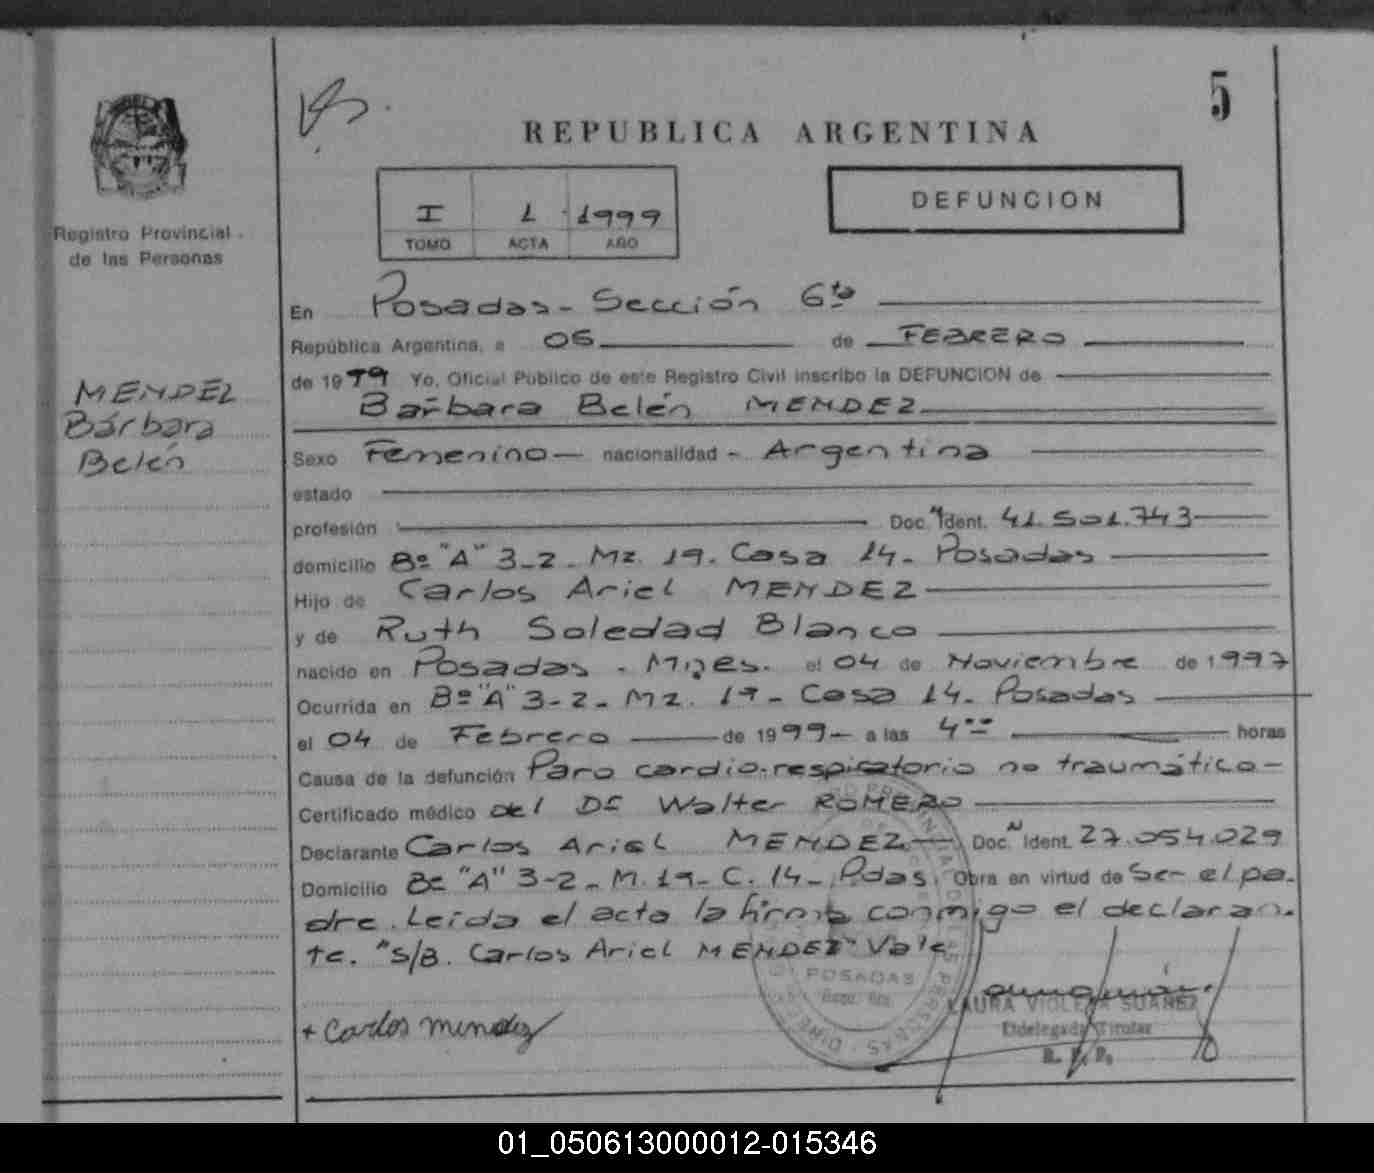 5
REPUBLICA ARGENTINA
I 1 1999
TOMO ACTA AÑO
DEFUNCION
Registro Provincial
de las Personas
MENDEZ
Bárbara
Belén
En Posadas - Sección 6ta
República Argentina, a 05 de FEBRERO
de 1999 Yo, Oficial Público de este Registro Civil inscribo la DEFUNCION de
Bárbara Belén MENDEZ
Sexo Femenino nacionalidad - Argentina
estado
profesión Doc. N Ident. 41.501.743
domicilio Bº "A" 3-2 - Mz. 19. Casa 14 - Posadas
Hijo de Carlos Ariel MENDEZ
y de Ruth Soledad Blanco
nacido en Posadas - Mnes. el 04 de Noviembre de 1997
Ocurrida en Bº "A" 3-2 - Mz. 19 - Casa 14 - Posadas
el 04 de Febrero de 1999 - a las 4 horas
Causa de la defunción Paro cardio-respiratorio no traumático -
Certificado médico del Dr Walter ROMERO
Declarante Carlos Ariel MENDEZ Doc. N Ident. 27.054.029
Domicilio Bº "A" 3-2 - M. 19 - C. 14 - Pdas. Obra en virtud de Ser el pa-
dre. Leída el acta la firma conmigo el declaran-
te. "S/B. Carlos Ariel MENDEZ" Vale
POSADAS
LAURA VIOLETA SUAREZ
Titular
R. P. P.
+ Carlos mendez
01_050613000012-015346